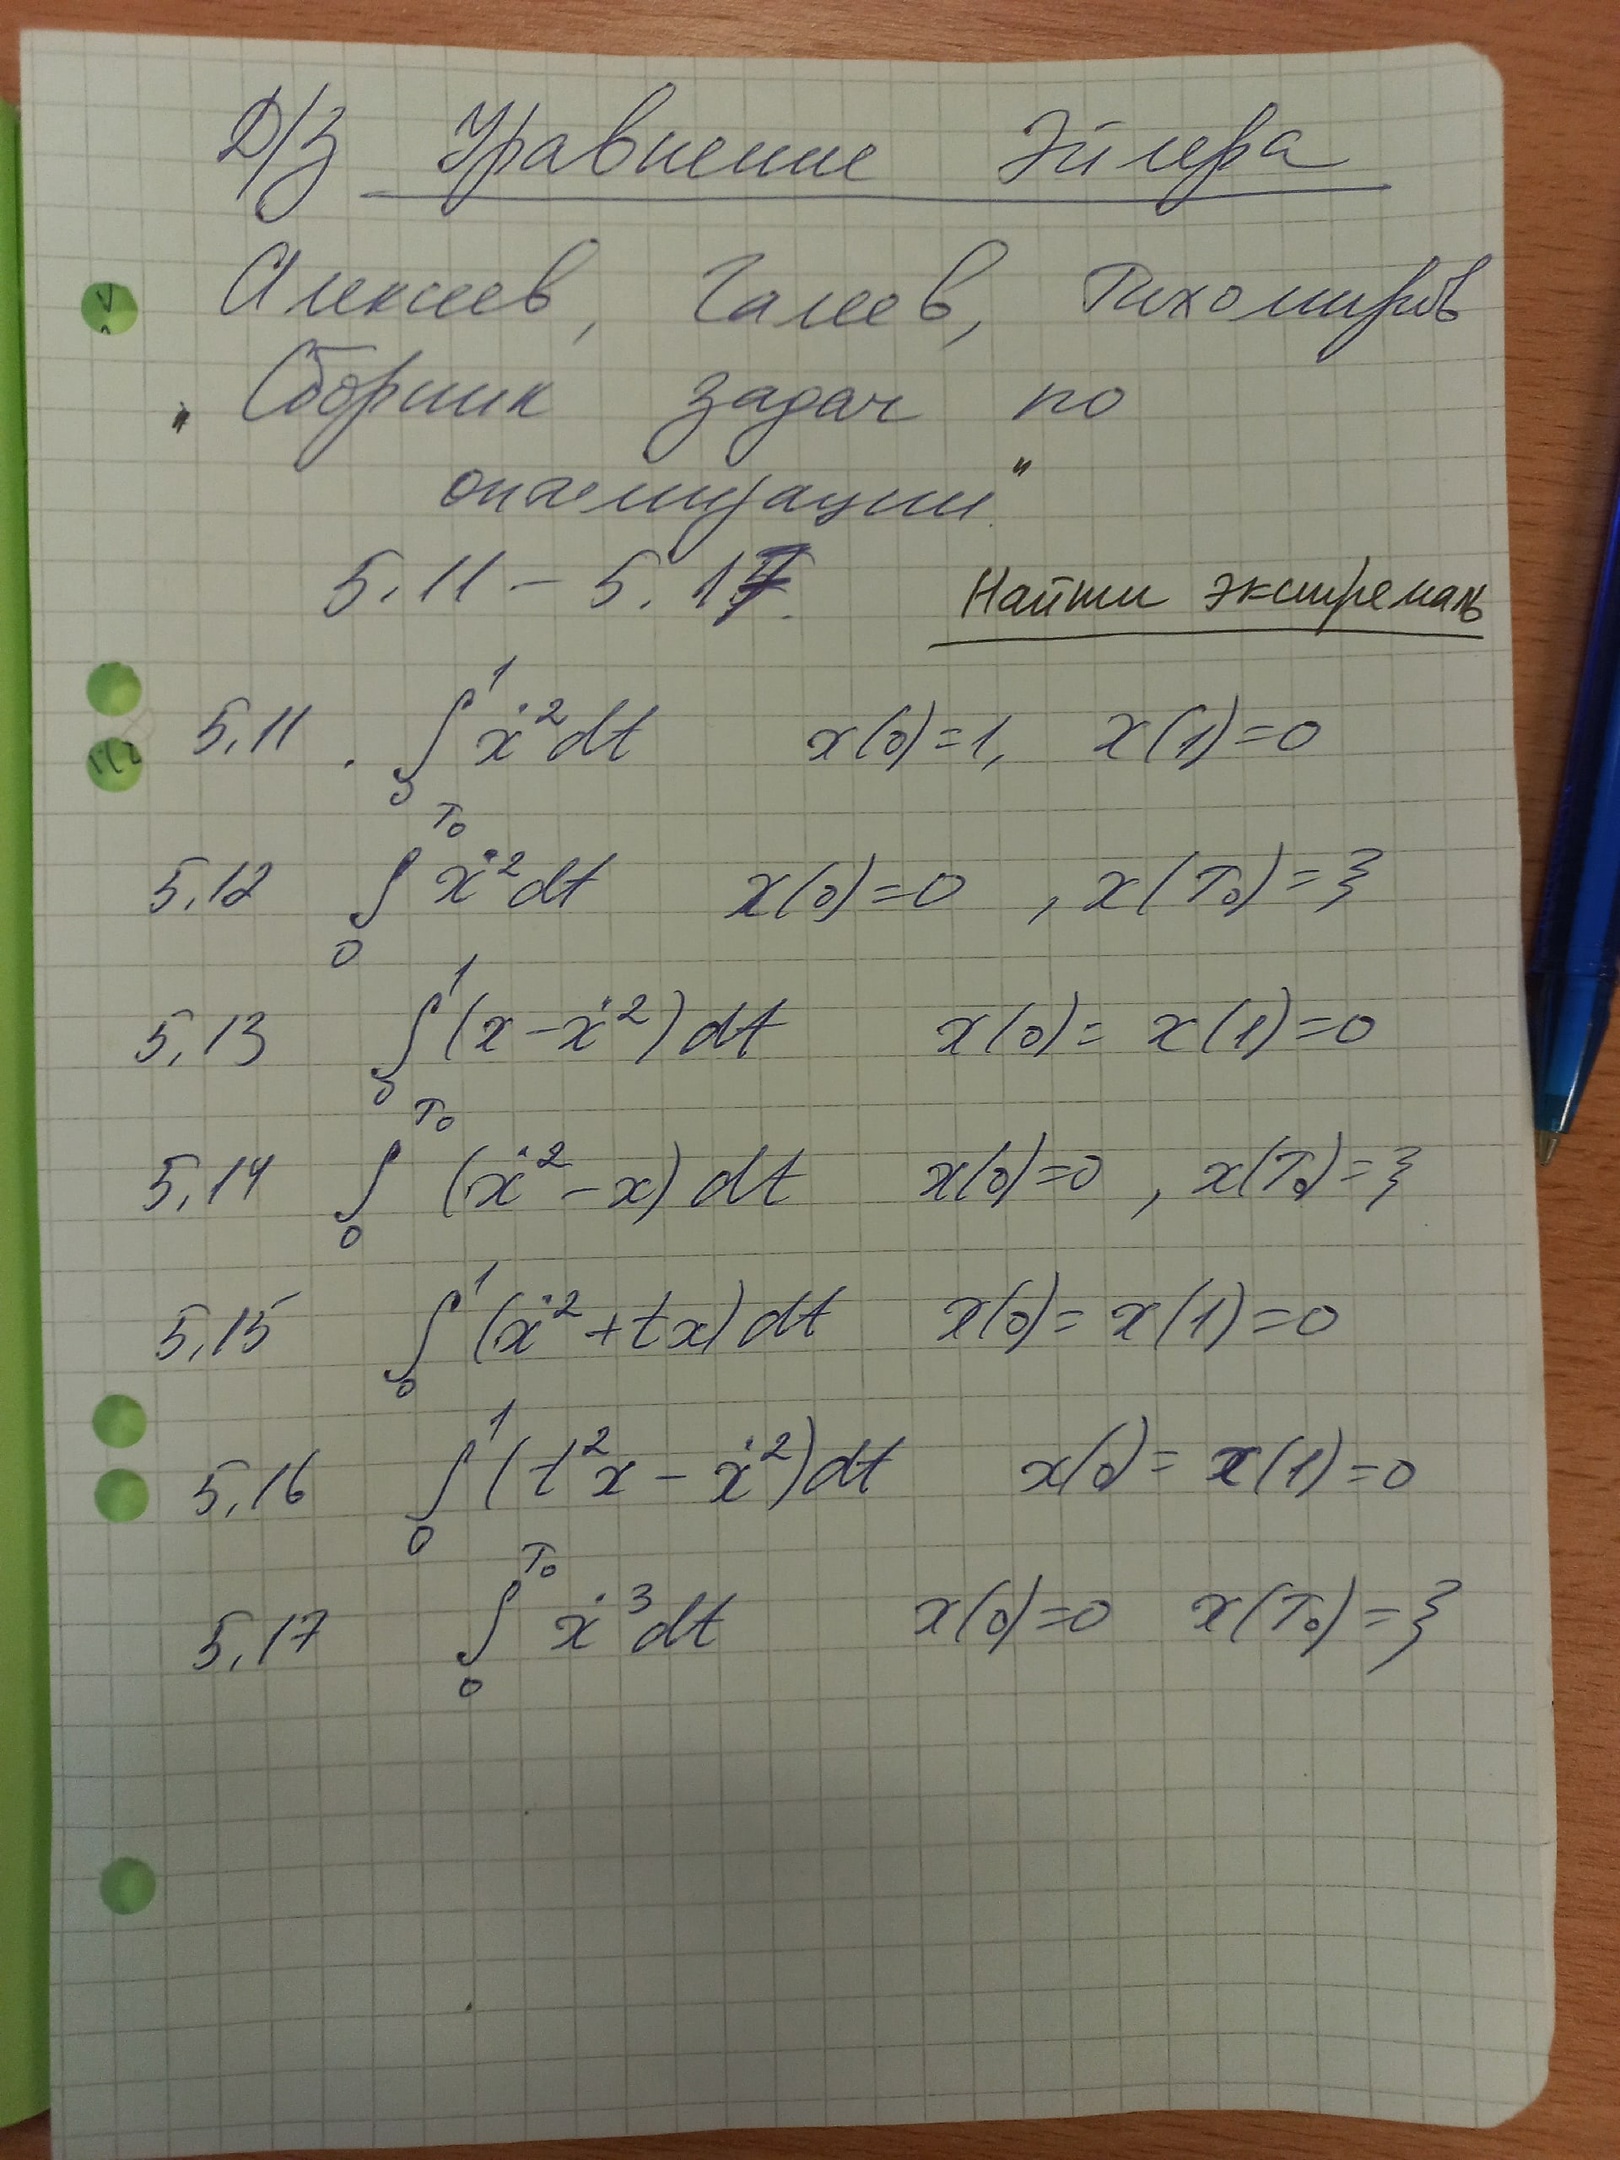 Д/З Уравнение Эйлера
Алексеев, Галеев, Тихомиров
"Сборник задач по
оптимизации"
5.11 – 5.17.
Найти экстремаль
5,11. ∫₀¹ ẋ² dt x(0)=1, x(1)=0
5,12 ∫₀^T₀ ẋ² dt x(0)=0, x(T₀)=ξ
5,13 ∫₀¹ (x – ẋ²) dt x(0)= x(1)=0
5,14 ∫₀^T₀ (ẋ² – x) dt x(0)=0, x(T₀)=ξ
5,15 ∫₀¹ (ẋ² + tx) dt x(0)= x(1)=0
5,16 ∫₀¹ (t²x – ẋ²) dt x(0)= x(1)=0
5,17 ∫₀^T₀ ẋ³ dt x(0)=0 x(T₀)=ξ